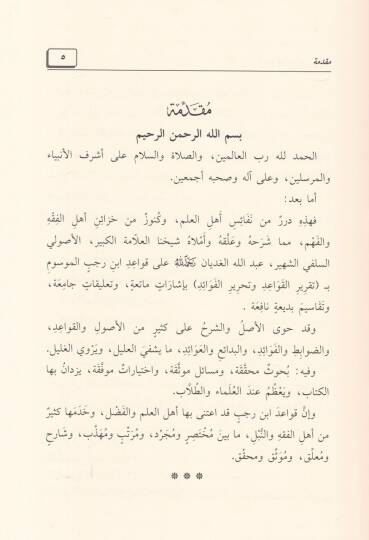 مقدمة
٥
مُقَدِّمَة
بسم الله الرحمن الرحيم
الحمد لله رب العالمين، والصلاة والسلام على أشرف الأنبياء
والمرسلين، وعلى آله وصحبه أجمعين.
أما بعد:
فهذِهِ دررٌ من نَفَائِسِ أهلِ العلم، وكُنوزٌ من خزائنِ أهلِ الفِقْهِ
والفَهْمِ، مما شَرَحَهُ وعَلَّقَهُ وأَمْلاهُ شيخنا العلَّامة الكبير، الأصولي
السلفي الشهير، عبد الله الغديان رَحِمَهُ اللَّهُ على قواعِدِ ابنِ رجبٍ الموسومِ
بـ (تقريرِ القَوَاعِدِ وتحريرِ الفَوَائِدِ) بإشاراتٍ مانعةٍ، وتعليقاتٍ جامِعَة،
وتَقَاسيمَ بديعةٍ نافِعَة .
وقد حوى الأصلُ والشرحُ على كثيرٍ من الأصولِ والقواعِدِ،
والضوابطِ والفَوَائِدِ، والبدائعِ والعَوَائِدِ، ما يشفي العليل، ويَرْوي الغليل.
وفيه: بُحوثٌ محقَّقَة، ومسائل موثَّقَة، واختياراتٌ موفَّقَة، يزدانُ بها
الكتاب، ويَعْظُمُ عندَ العُلَماء والطُّلَّاب.
وإنَّ قواعدَ ابن رجبٍ قد اعتنى بها أهل العلم والفَضْل، وخَدَمَها كثيرٌ
من أهل الفقهِ والنُّبْلِ، ما بينَ مُخْتَصِرٍ ومُجَرِّد، ومُرَتِّبٍ ومُهَذِّب، وشَارِحٍ
ومُعلِّق، ومُوَثِّق ومحقِّق.
* * *